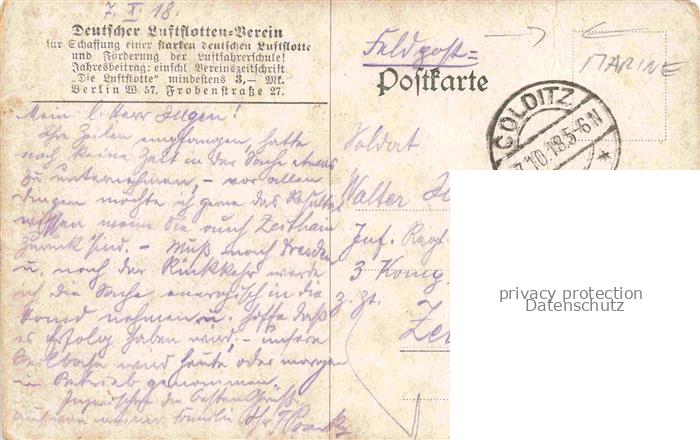 7. X. 18.
Deutscher Luftflotten-Verein
für Schaffung einer starken deutschen Luftflotte
und Förderung der Luftfahrerschule!
Jahresbeitrag: einschl. Vereinszeitschrift
„Die Luftflotte" mindestens 3,— Mk.
Berlin W 57, Frobenstraße 27.
Mein l. Herr
Ihre Zeilen empfangen, hatte
noch keine Zeit in der Sache etwas
zu unternehmen, – vor allen
Dingen möchte ich gerne das Resultat
wissen wenn Sie auch Zeithain
zurück sind. – Muß nach Dresden
u. nach der Rückkehr werde
ich die Sache energisch in die
Hand nehmen u. hoffe daß
es Erfolg haben wird. – unsere
Seilbahn wird heute oder morgen
in Betrieb genommen.
die besten Grüße
auch von meiner Familie Ihr
Feldpost=
Postkarte
MARINE
COLDITZ
7.10.18.5-6N
*
Soldat
Walter
Inf. Regt.
3 Komp.
z. Zt.
privacy protection
Datenschutz